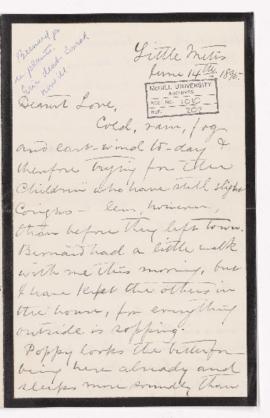 Little Metis
June 14th 1895.
McGILL UNIVERSITY
ARCHIVES
ACC. NO. 1010
REF.
Dearest Love,
Cold, rain, fog
and east-wind to-day &
therefore trying for the
Children who have still slight
Coughs — less, however,
than before they left town.
Bernard had a little walk
with me this morning, but
I have kept the others in
the house, for everything
outside is sopping.
Poppy looks the better for
being here already and
sleeps more soundly than